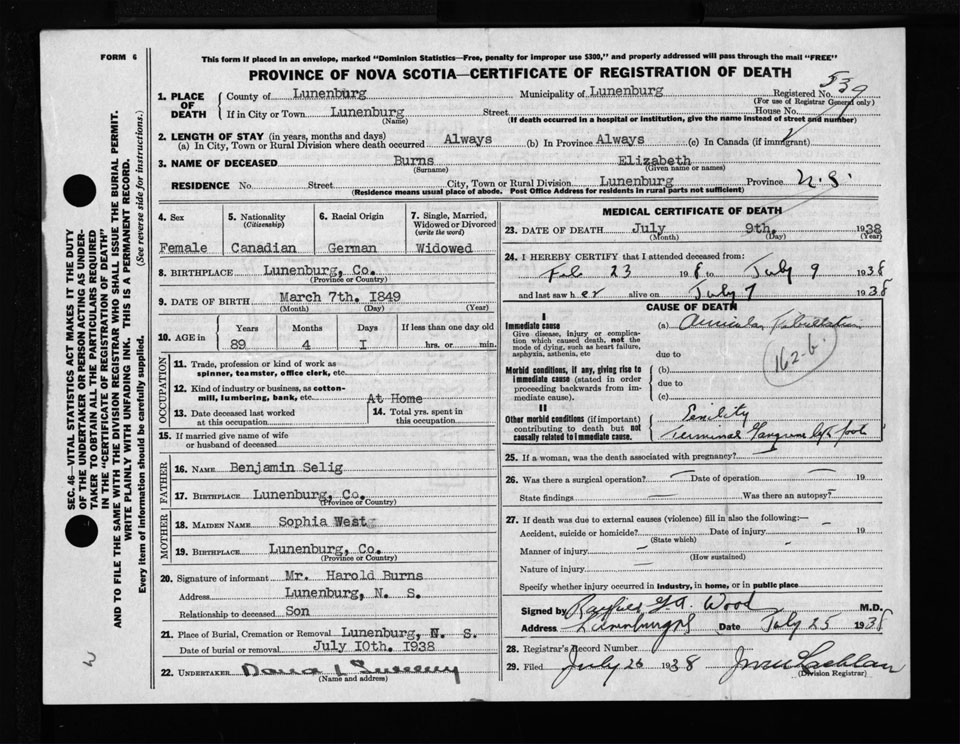 FORM 6
This form if placed in an envelope, marked "Dominion Statistics—Free, penalty for improper use $300," and properly addressed will pass through the mail "FREE"
PROVINCE OF NOVA SCOTIA—CERTIFICATE OF REGISTRATION OF DEATH
539
1. PLACE OF DEATH
County of Lunenburg Municipality of Lunenburg Registered No.
(For use of Registrar General only)
If in City or Town Lunenburg Street House No.
(Name) (If death occurred in a hospital or institution, give the name instead of street and number)
2. LENGTH OF STAY (in years, months and days)
(a) In City, Town or Rural Division where death occurred Always (b) In Province Always (c) In Canada (if immigrant)
3. NAME OF DECEASED Burns Elizabeth
(Surname) (Given name or names)
RESIDENCE No. Street City, Town or Rural Division Lunenburg Province N.S.
(Residence means usual place of abode. Post Office Address for residents in rural parts not sufficient)
SEC. 46—VITAL STATISTICS ACT MAKES IT THE DUTY
OF THE UNDERTAKER OR PERSON ACTING AS UNDER-
TAKER TO OBTAIN ALL THE PARTICULARS REQUIRED
IN THE "CERTIFICATE OF REGISTRATION OF DEATH"
AND TO FILE THE SAME WITH THE DIVISION REGISTRAR WHO SHALL ISSUE THE BURIAL PERMIT.
WRITE PLAINLY WITH UNFADING INK. THIS IS A PERMANENT RECORD.
Every item of information should be carefully supplied. (See reverse side for instructions.)
4. Sex 5. Nationality (Citizenship) 6. Racial Origin 7. Single, Married, Widowed or Divorced (write the word)
Female Canadian German Widowed
8. BIRTHPLACE Lunenburg, Co.
(Province or Country)
9. DATE OF BIRTH March 7th. 1849
(Month) (Day) (Year)
10. AGE in Years Months Days If less than one day old
89 4 I hrs. or min.
OCCUPATION
11. Trade, profession or kind of work as
spinner, teamster, office clerk, etc.
12. Kind of industry or business, as cotton-
mill, lumbering, bank, etc. At Home
13. Date deceased last worked at this occupation
14. Total yrs. spent in this occupation
15. If married give name of wife
or husband of deceased
FATHER
16. NAME Benjamin Selig
17. BIRTHPLACE Lunenburg, Co.
(Province or Country)
MOTHER
18. MAIDEN NAME Sophia West
19. BIRTHPLACE Lunenburg, Co.
(Province or Country)
20. Signature of informant Mr. Harold Burns
Address Lunenburg, N. S.
Relationship to deceased Son
21. Place of Burial, Cremation or Removal Lunenburg, N. S.
Date of burial or removal July IOth. 1938
22. UNDERTAKER
(Name and address)
MEDICAL CERTIFICATE OF DEATH
23. DATE OF DEATH July 9th. 1938
(Month) (Day) (Year)
24. I HEREBY CERTIFY that I attended deceased from:
Feb 23 1938 to July 9 1938
and last saw her alive on July 7 1938
CAUSE OF DEATH
I
Immediate cause
Give disease, injury or complica-
tion which caused death, not the
mode of dying, such as heart failure,
asphyxia, asthenia, etc
(a) Auricular Fibrillation
due to
162-b.
Morbid conditions, if any, giving rise to
immediate cause (stated in order
proceeding backwards from im-
mediate cause).
(b)
due to
(c)
II
Other morbid conditions (if important)
contributing to death but not
causally related to immediate cause.
Senility
Terminal Gangrene left foot
25. If a woman, was the death associated with pregnancy?
26. Was there a surgical operation? Date of operation 19
State findings Was there an autopsy?
27. If death was due to external causes (violence) fill in also the following:—
Accident, suicide or homicide? Date of injury 19
(State which)
Manner of injury
(How sustained)
Nature of injury
Specify whether injury occurred in industry, in home, or in public place
Signed by Wood M.D.
Address Lunenburg NS Date July 25 1938
28. Registrar's Record Number
29. Filed July 26 1938
(Division Registrar)